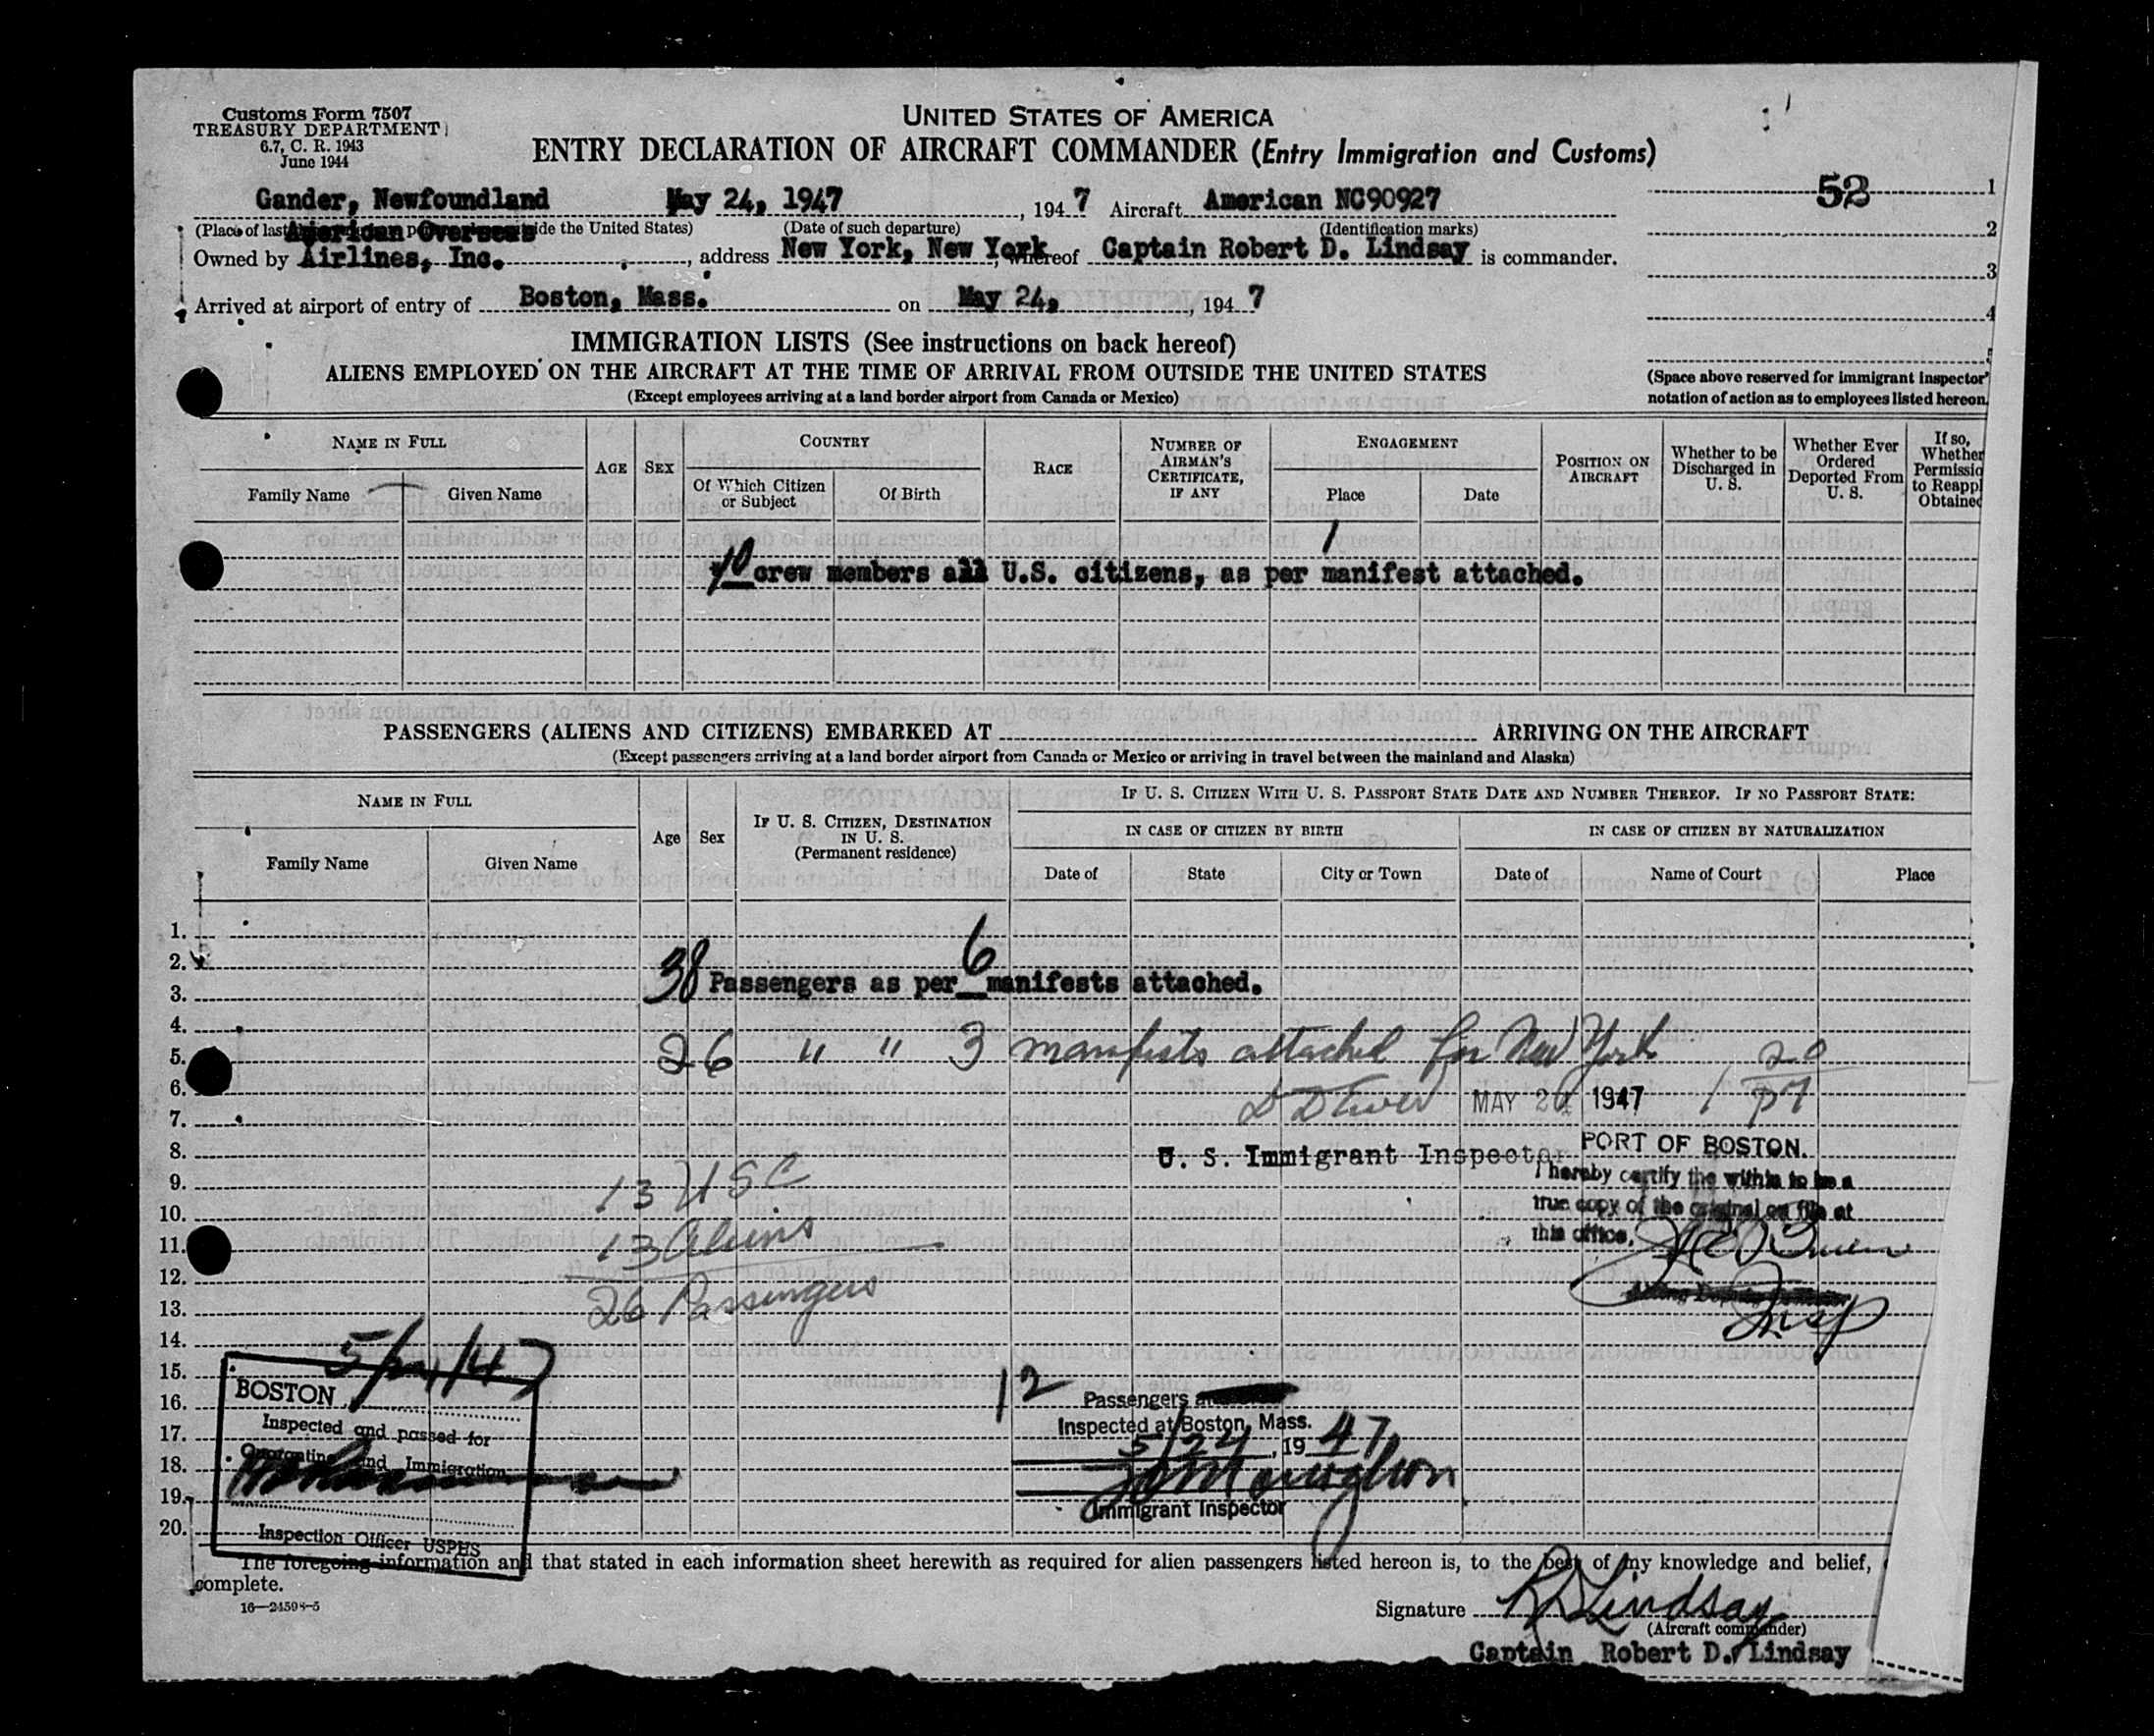 Customs Form 7507
TREASURY DEPARTMENT
6.7, C. R. 1943
June 1944
UNITED STATES OF AMERICA
ENTRY DECLARATION OF AIRCRAFT COMMANDER (Entry Immigration and Customs)
Gander, Newfoundland May 24, 1947, 194 7 Aircraft American NC90927
52 1
(Place of last ide the United States) (Date of such departure) (Identification marks)
American Overseas
2
Owned by Airlines, Inc., address New York, New York, whereof Captain Robert D. Lindsay is commander.
3
Arrived at airport of entry of Boston, Mass. on May 24, 194 7
4
5
IMMIGRATION LISTS (See instructions on back hereof)
ALIENS EMPLOYED ON THE AIRCRAFT AT THE TIME OF ARRIVAL FROM OUTSIDE THE UNITED STATES
(Except employees arriving at a land border airport from Canada or Mexico)
(Space above reserved for immigrant inspector'
notation of action as to employees listed hereon.
NAME IN FULL
Family Name Given Name
AGE SEX
COUNTRY
Of Which Citizen or Subject Of Birth
RACE
NUMBER OF AIRMAN'S CERTIFICATE, IF ANY
ENGAGEMENT
Place Date
POSITION ON AIRCRAFT
Whether to be Discharged in U. S.
Whether Ever Ordered Deported From U. S.
If so, Whether Permissio to Reappl Obtained
1
10 crew members all U.S. citizens, as per manifest attached.
PASSENGERS (ALIENS AND CITIZENS) EMBARKED AT ARRIVING ON THE AIRCRAFT
(Except passengers arriving at a land border airport from Canada or Mexico or arriving in travel between the mainland and Alaska)
NAME IN FULL
Family Name Given Name
Age Sex
IF U. S. CITIZEN, DESTINATION IN U. S.
(Permanent residence)
IF U. S. CITIZEN WITH U. S. PASSPORT STATE DATE AND NUMBER THEREOF. IF NO PASSPORT STATE:
IN CASE OF CITIZEN BY BIRTH IN CASE OF CITIZEN BY NATURALIZATION
Date of State City or Town Date of Name of Court Place
1.
2.
38 Passengers as per 6 manifests attached.
3.
4.
26 " " 3 manifests attached for New York
5.
20
6.
MAY 24 1947
7.
8.
U. S. Immigrant Inspector
PORT OF BOSTON.
I hereby certify the within to be a
9.
13 USC
true copy of the original on file at
10.
this office.
11.
13 Aliens
12.
26 Passengers
13.
Insp
14.
5/24/47
15.
BOSTON
12 Passengers
16.
Inspected and passed for
Inspected at Boston, Mass.
17.
5/24, 19 47
Quarantine and Immigration
18.
19.
Immigrant Inspector
20.
Inspection Officer USPHS
The foregoing information and that stated in each information sheet herewith as required for alien passengers listed hereon is, to the best of my knowledge and belief,
complete.
16—24598-5
Signature R D Lindsay
(Aircraft commander)
Captain Robert D. Lindsay